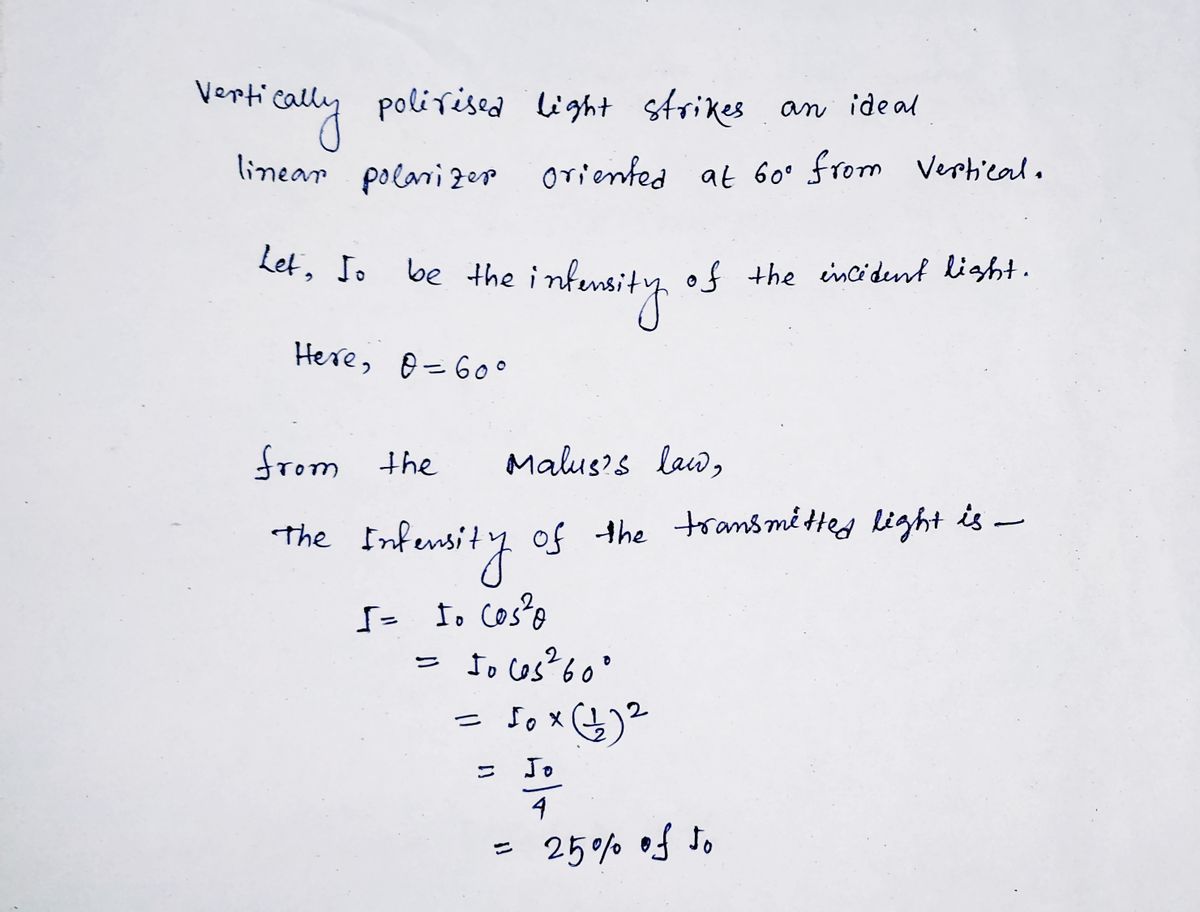 Vertically polirised light strikes an ideal
linear polarizer oriented at 60° from Vertical.
Let, I₀ be the intensity of the incident light.
Here, θ = 60°
from the Malus's law,
The Intensity of the transmitted light is —
I = I₀ Cos²θ
= I₀ Cos²60°
= I₀ × (1/2)²
= I₀/4
= 25% of I₀